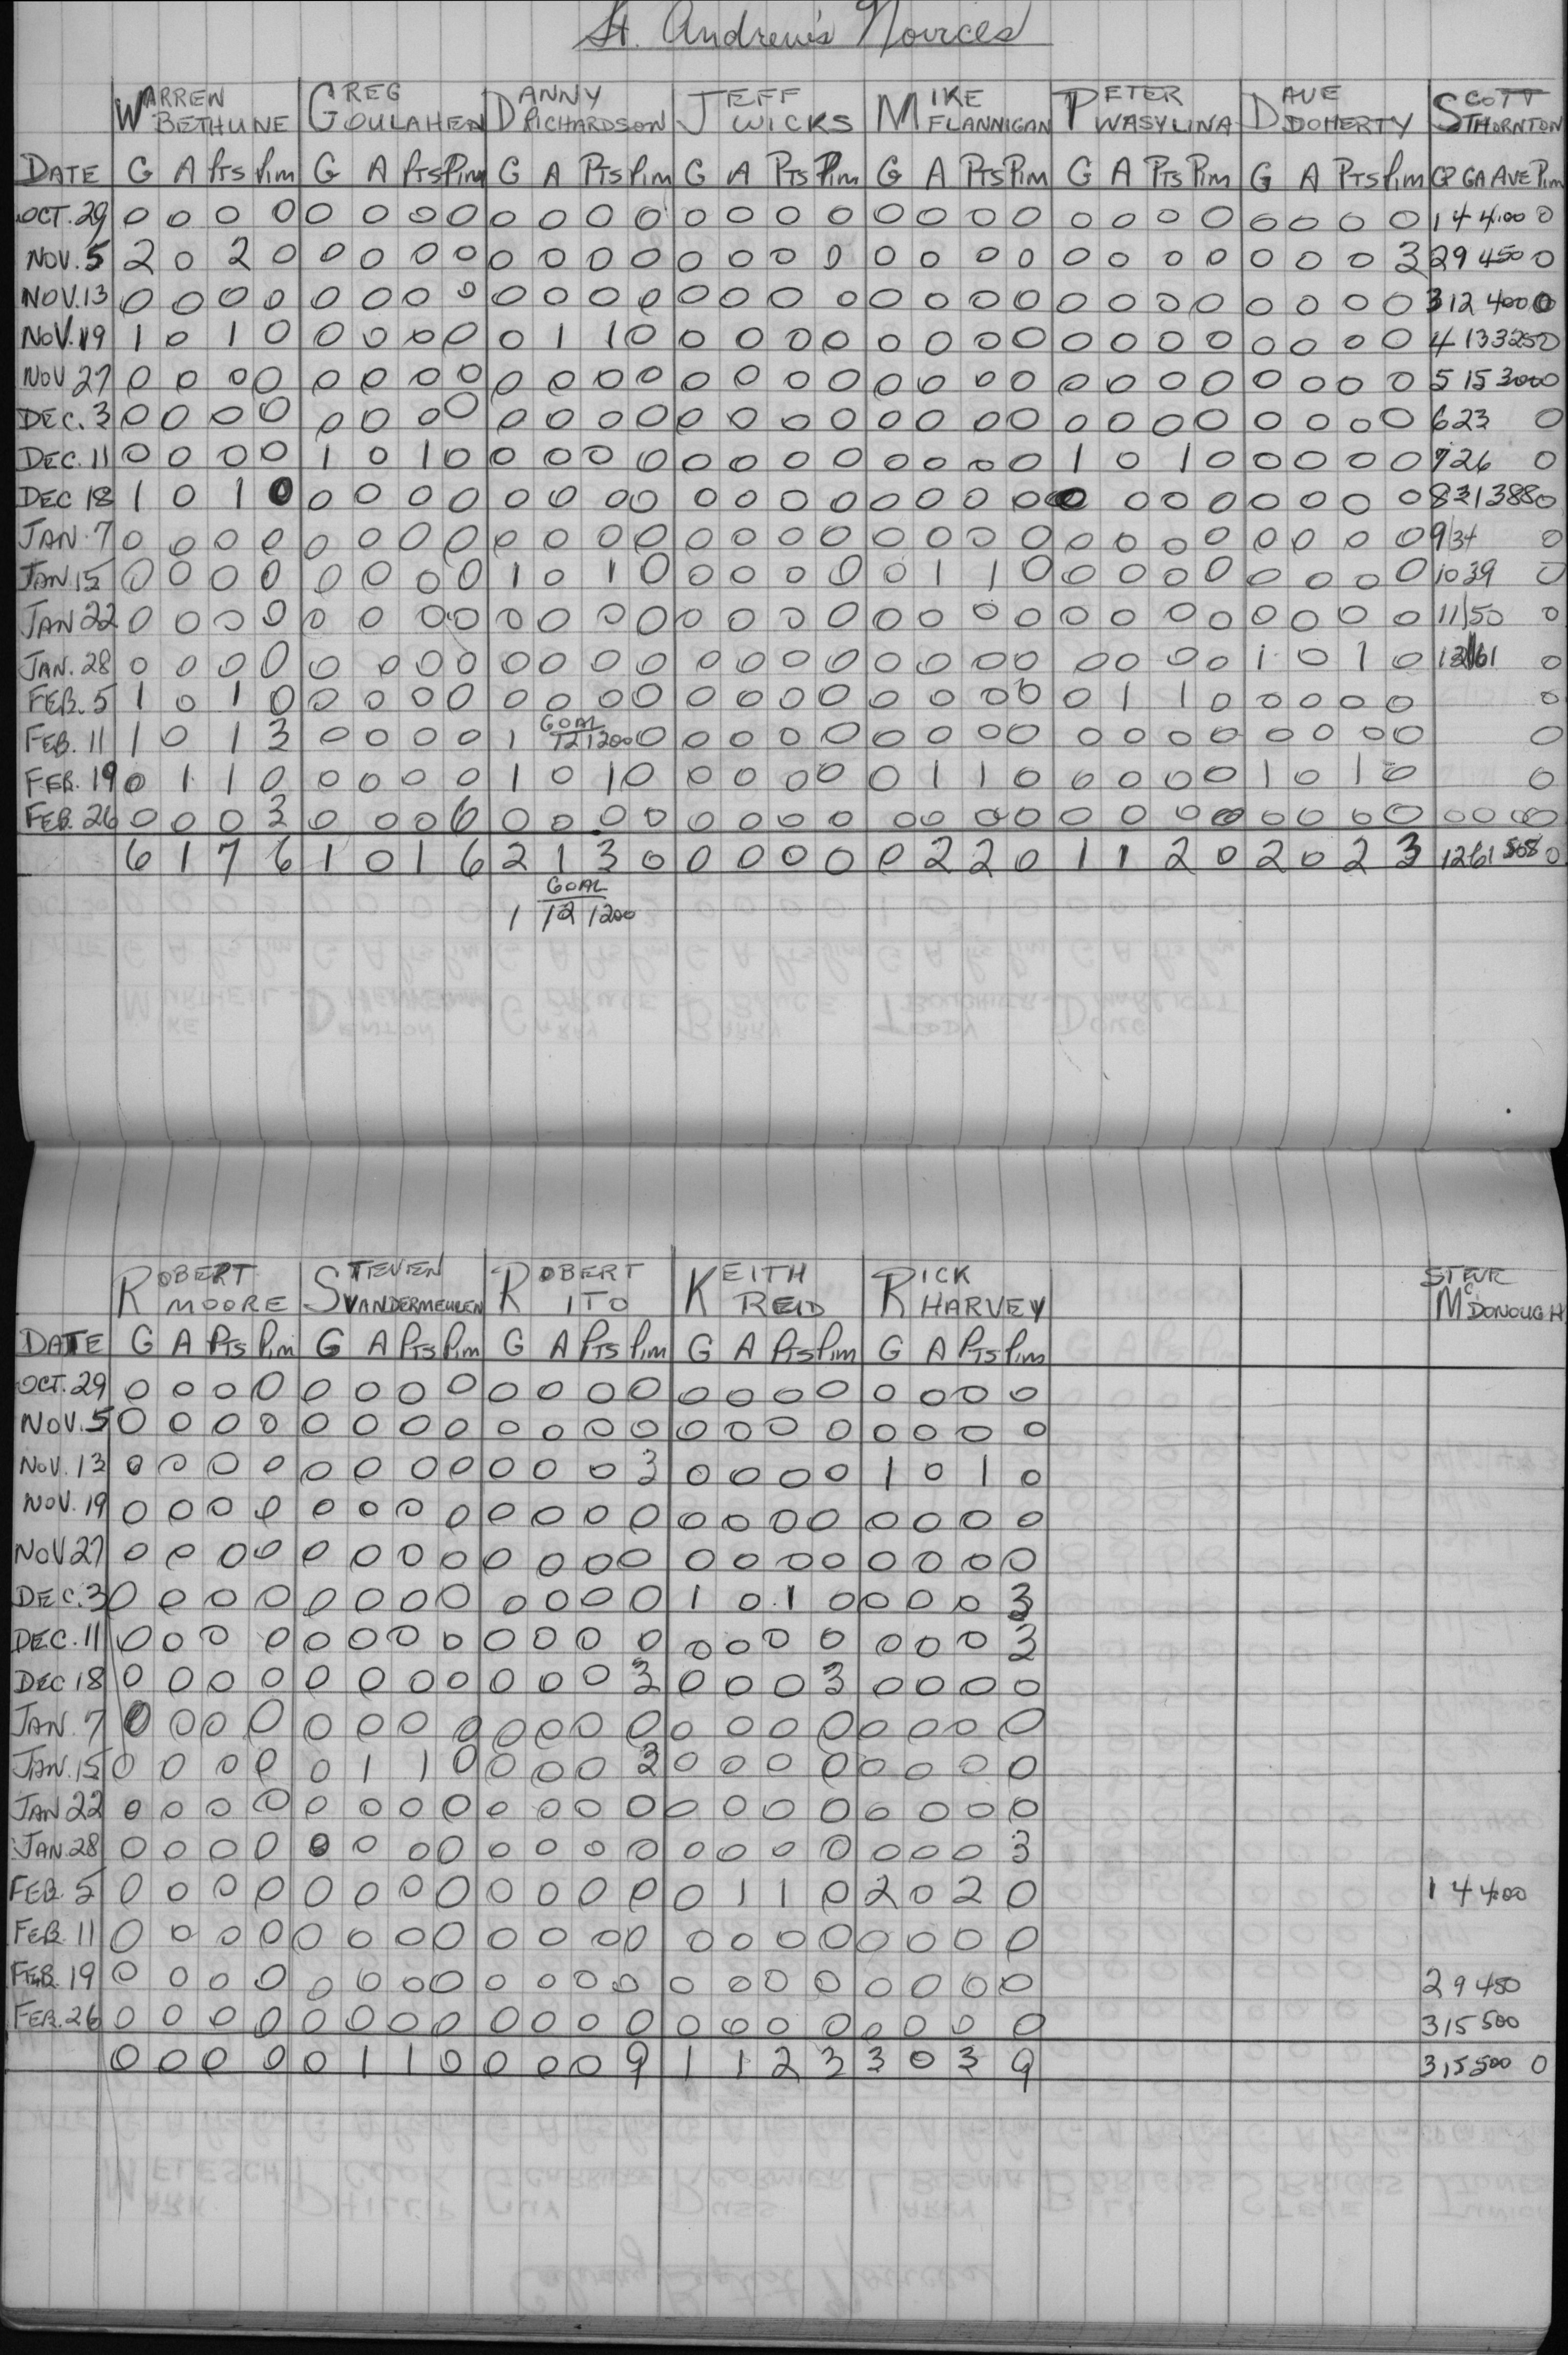 St. Andrew's Novices
WARREN BETHUNE GREG GOULAHEN DANNY RICHARDSON JEFF WICKS MIKE FLANNIGAN PETER WASYLINA DAVE DOHERTY SCOTT THORNTON
DATE G A Pts Pim G A Pts Pim G A Pts Pim G A Pts Pim G A Pts Pim G A Pts Pim G A Pts Pim GP GA AVE Pim
OCT. 29 0 0 0 0 0 0 0 0 0 0 0 0 0 0 0 0 0 0 0 0 0 0 0 0 0 0 0 0 1 4 4.00 0
NOV. 5 2 0 2 0 0 0 0 0 0 0 0 0 0 0 0 0 0 0 0 0 0 0 0 0 0 0 0 3 2 9 450 0
NOV. 13 0 0 0 0 0 0 0 0 0 0 0 0 0 0 0 0 0 0 0 0 0 0 0 0 0 0 0 0 3 12 400 0
NOV. 19 1 0 1 0 0 0 0 0 0 1 1 0 0 0 0 0 0 0 0 0 0 0 0 0 0 0 0 0 4 13 325 0
NOV 27 0 0 0 0 0 0 0 0 0 0 0 0 0 0 0 0 0 0 0 0 0 0 0 0 0 0 0 0 5 15 300 0
DEC. 3 0 0 0 0 0 0 0 0 0 0 0 0 0 0 0 0 0 0 0 0 0 0 0 0 0 0 0 0 6 23 0
DEC. 11 0 0 0 0 1 0 1 0 0 0 0 0 0 0 0 0 0 0 0 0 1 0 1 0 0 0 0 0 7 26 0
DEC 18 1 0 1 0 0 0 0 0 0 0 0 0 0 0 0 0 0 0 0 0 0 0 0 0 0 0 0 0 8 31 388 0
JAN. 7 0 0 0 0 0 0 0 0 0 0 0 0 0 0 0 0 0 0 0 0 0 0 0 0 0 0 0 0 9 34 0
JAN. 15 0 0 0 0 0 0 0 0 1 0 1 0 0 0 0 0 0 1 1 0 0 0 0 0 0 0 0 0 10 39 0
JAN 22 0 0 0 0 0 0 0 0 0 0 0 0 0 0 0 0 0 0 0 0 0 0 0 0 0 0 0 0 11 50 0
JAN. 28 0 0 0 0 0 0 0 0 0 0 0 0 0 0 0 0 0 0 0 0 0 0 0 0 1 0 1 0 12 61 0
FEB. 5 1 0 1 0 0 0 0 0 0 0 0 0 0 0 0 0 0 0 0 0 0 1 1 0 0 0 0 0 0
FEB. 11 1 0 1 3 0 0 0 0 1 GOAL 12 1200 0 0 0 0 0 0 0 0 0 0 0 0 0 0 0 0 0 0
FEB. 19 0 1 1 0 0 0 0 0 1 0 1 0 0 0 0 0 0 1 1 0 0 0 0 0 1 0 1 0 0
FEB. 26 0 0 0 3 0 0 0 6 0 0 0 0 0 0 0 0 0 0 0 0 0 0 0 0 0 0 0 0 0 0 0 0
6 1 7 6 1 0 1 6 2 1 3 0 0 0 0 0 0 2 2 0 1 1 2 0 2 0 2 3 12 61 508 0
GOAL
1 12 1200
ROBERT MOORE STEVEN VANDERMEULEN ROBERT ITO KEITH REID RICK HARVEY STEVE McDONOUGH
DATE G A Pts Pim G A Pts Pim G A Pts Pim G A Pts Pim G A Pts Pim
OCT. 29 0 0 0 0 0 0 0 0 0 0 0 0 0 0 0 0 0 0 0 0
NOV. 5 0 0 0 0 0 0 0 0 0 0 0 0 0 0 0 0 0 0 0 0
NOV. 13 0 0 0 0 0 0 0 0 0 0 0 3 0 0 0 0 1 0 1 0
NOV. 19 0 0 0 0 0 0 0 0 0 0 0 0 0 0 0 0 0 0 0 0
NOV 27 0 0 0 0 0 0 0 0 0 0 0 0 0 0 0 0 0 0 0 0
DEC. 3 0 0 0 0 0 0 0 0 0 0 0 0 1 0 1 0 0 0 0 3
DEC. 11 0 0 0 0 0 0 0 0 0 0 0 0 0 0 0 0 0 0 0 3
DEC 18 0 0 0 0 0 0 0 0 0 0 0 3 0 0 0 3 0 0 0 0
JAN. 7 0 0 0 0 0 0 0 0 0 0 0 0 0 0 0 0 0 0 0 0
JAN. 15 0 0 0 0 0 1 1 0 0 0 0 3 0 0 0 0 0 0 0 0
JAN 22 0 0 0 0 0 0 0 0 0 0 0 0 0 0 0 0 0 0 0 0
JAN. 28 0 0 0 0 0 0 0 0 0 0 0 0 0 0 0 0 0 0 0 3
FEB. 5 0 0 0 0 0 0 0 0 0 0 0 0 0 1 1 0 2 0 2 0 1 4 400
FEB. 11 0 0 0 0 0 0 0 0 0 0 0 0 0 0 0 0 0 0 0 0
FEB. 19 0 0 0 0 0 0 0 0 0 0 0 0 0 0 0 0 0 0 0 0 2 9 450
FEB. 26 0 0 0 0 0 0 0 0 0 0 0 0 0 0 0 0 0 0 0 0 3 15 500
0 0 0 0 0 1 1 0 0 0 0 9 1 1 2 3 3 0 3 9 3 15 500 0